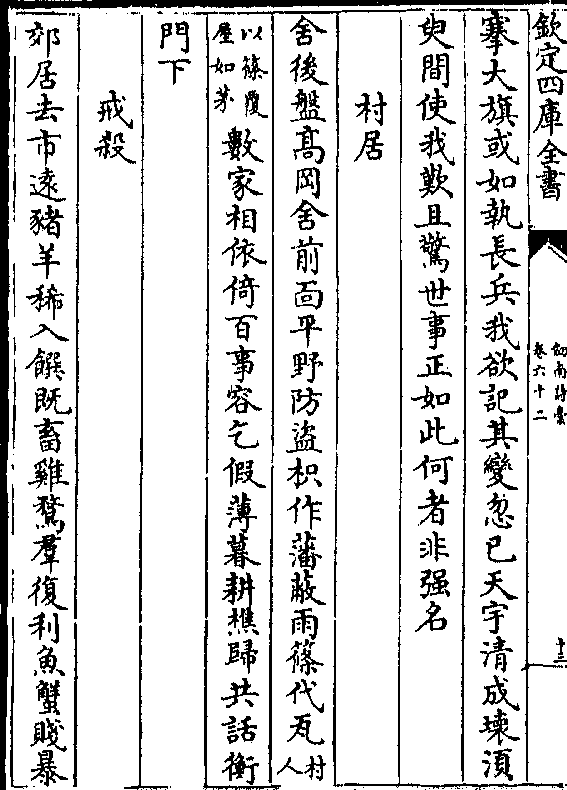 欽定四庫全書
劍南詩稾
卷六十二
十三
搴大旗或如執長兵我欲記其變忽已天宇清成壊湏
臾間使我歎且驚世事正如此何者非强名
村居
舍後盤髙岡舍前面平野防盗枳作藩蔽雨篠代瓦村人
以篠覆屋如茅數家相依倚百事容乞假薄暮耕樵歸共話衡
門下
戒殺
郊居去市逺豬羊稀入饌既畜雞鶩羣復利魚蟹賤暴